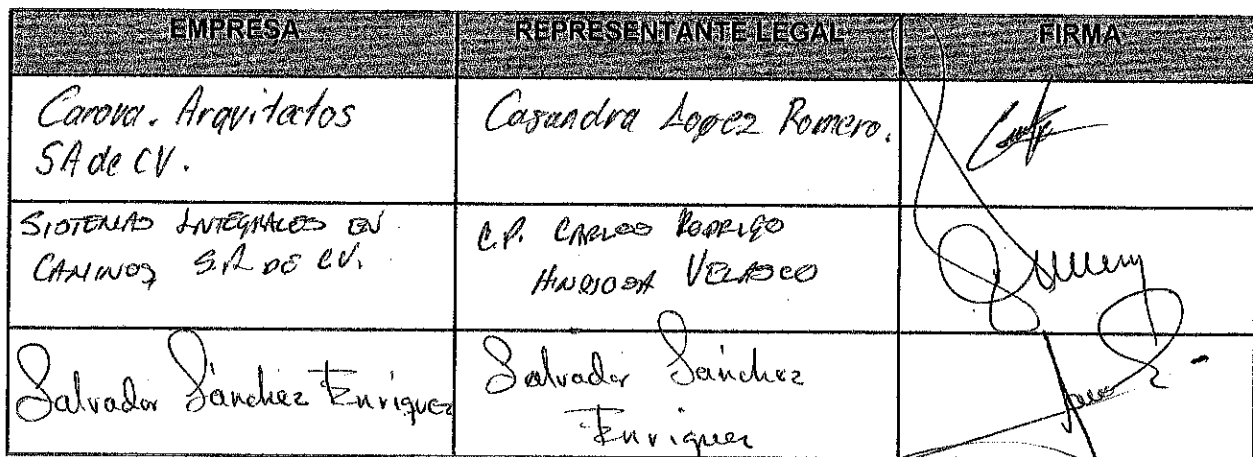 EMPRESA REPRESENTANTE LEGAL FIRMA
Carova. Arquitectos
SA de CV.
Casandra Lopez Romero.
SISTEMAS INTEGRALES EN
CAMINOS, S.A DE C.V.
C.P. CARLOS RODRIGO
HINOJOSA VELASCO
Salvador Sánchez Enriquez
Salvador Sánchez
Enriquez